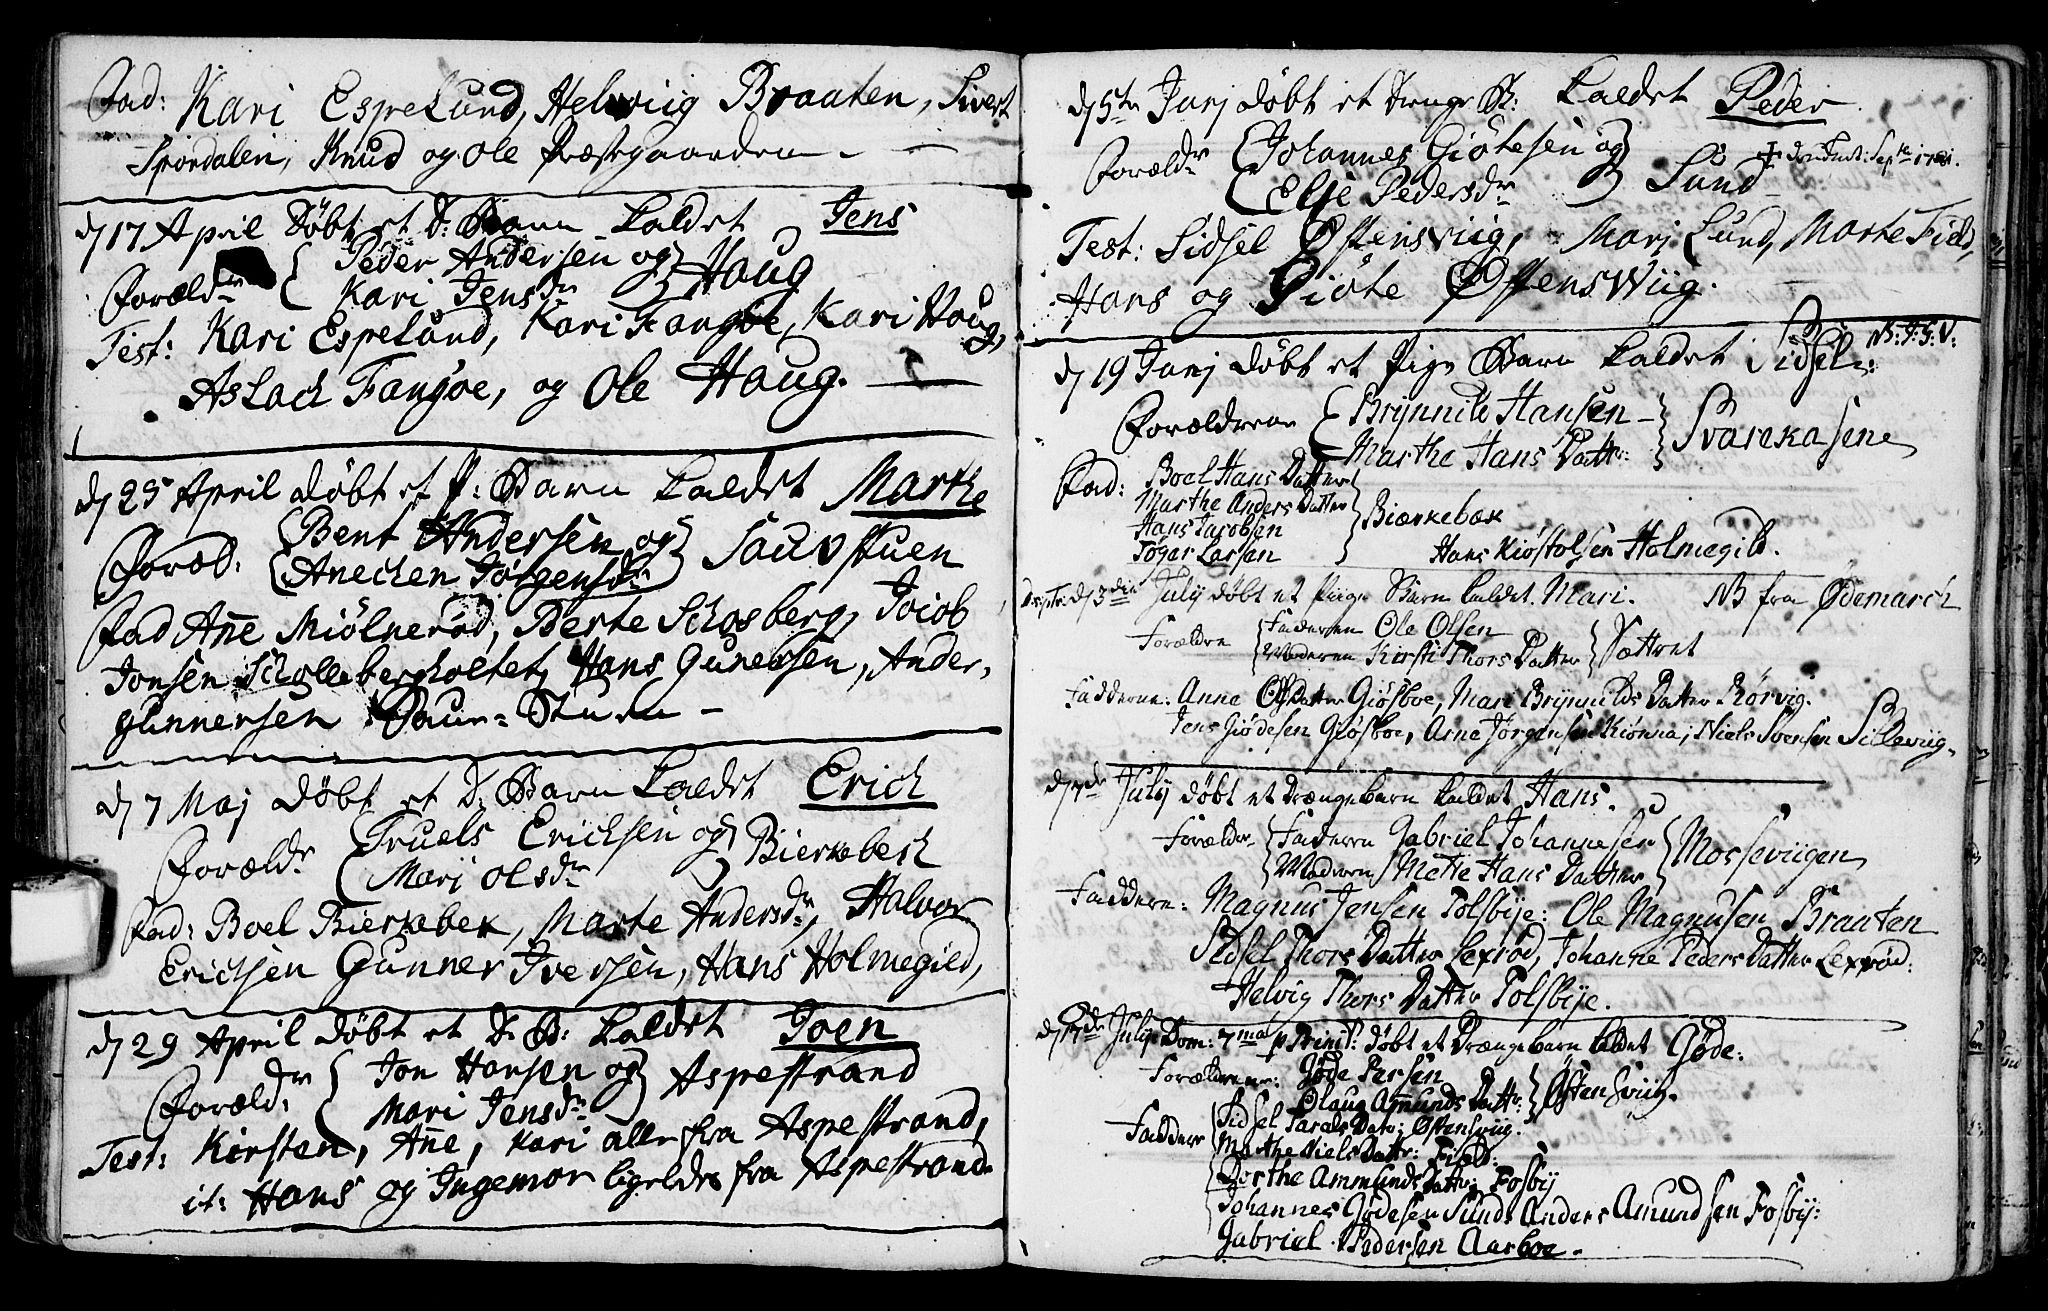 Fad: Kari Espelund, Helwiig Braaten, Sivert
Spordalen, Knud og Ole Præstegaarden
d 17 April Døbt et D: Barn kaldet Jens
Peder Andersen og
Forældr Kari Jensdr Haug
Test: Kari Espelund, Kari Fangøe, Kari Haug,
Aslach Fangøe, og Ole Haug.
d 25 April døbt et P: Barn kaldet Marthe
Bent Andersen og
Foræl: Anechen Jørgensdr Saugstuen
Fad Añe Miölnerød, Berte Schosberg, Joiob
Jonsen Schollebergholtet, Hans Gunersen, Ander,
Gunnersen Saug=Stuen
d 7 Maj døbt et D. Barn kaldet Erich
Truels Erichsen og
Forældr Mari Olsdr Bierkebech
Fad: Boel Bierkebek, Marte Andersdr, Halvor
Erichsen Gunner Iversen, Hans Holmegied,
d 29 April døbt et D. B: kaldet Joen
Jon Hansen og
Forældr Mari Jensdr Aspestrand
Test: Kirsten, Añe, Kari alle fra Aspestrand,
it: Hans og Ingemor ligeledes fra Aspestrand
d 5te Junj døbt et Drenge B: kaldet Peder
Johannes Giötesen og
Forældr Elje Pedersdr Sund
Test: Sidsel Østensviig, Marj Lund, Marte Field,
Hans og Giöte ØstensWiig.
N: T: G: V:
d 19 Junj døbt et Pige Barn kaldet Sidsel:
Forældrene Brynnild Hansen
Marthe Hans Datter: Svarekasene
Fad: Boel Hans Datter
Marthe Anders Datter
Hans Jacobsen Biærkebæk
Togar Larsen Hans Kiøstolsen Holmegild.
d 3die July døbt et Pige Barn kaldet Mari. NB fra Ödemarch
Forældre Faderen Ole Olsen
Moderen Kirsti Thors Datter Sættret
Fadderne: Anna Ols Datter Giøsboe, Mari Brynnilds Datter Rörvig.
Jens Giödesen Giøsboe, Arne Jörgensen Kiönna, Niels Svensen Sillevig.
d 7de July døbt et Drængebarn kaldet Hans.
Forældre Faderen Gabriel Johannesen
Moderen Mette Hans Datter Mosseviigen
Faddere: Magnus Jensen Tolsbye: Ole Magnusen Braaten
Sidsel Thors Datter Lexröd, Johanne Peders Datter Lexröd:
Helvig Thors Datter Tolsbye.
d 17de July Dom: 7ma p Trinit: døbt et Drængebarn kaldet Gøde:
Forældrene: Gøde Persen
Olaug Amunds Datter: Østensviig.
Sidsel Tarals Datr: Østensviig.
Faddere Marthe Niels Dattr: Field:
Berthe Ammunds Datter: Fosby
Johannes Gødesen Sund: Anders Amundsen Fosby:
Gabriel Pedersen Aarboe.